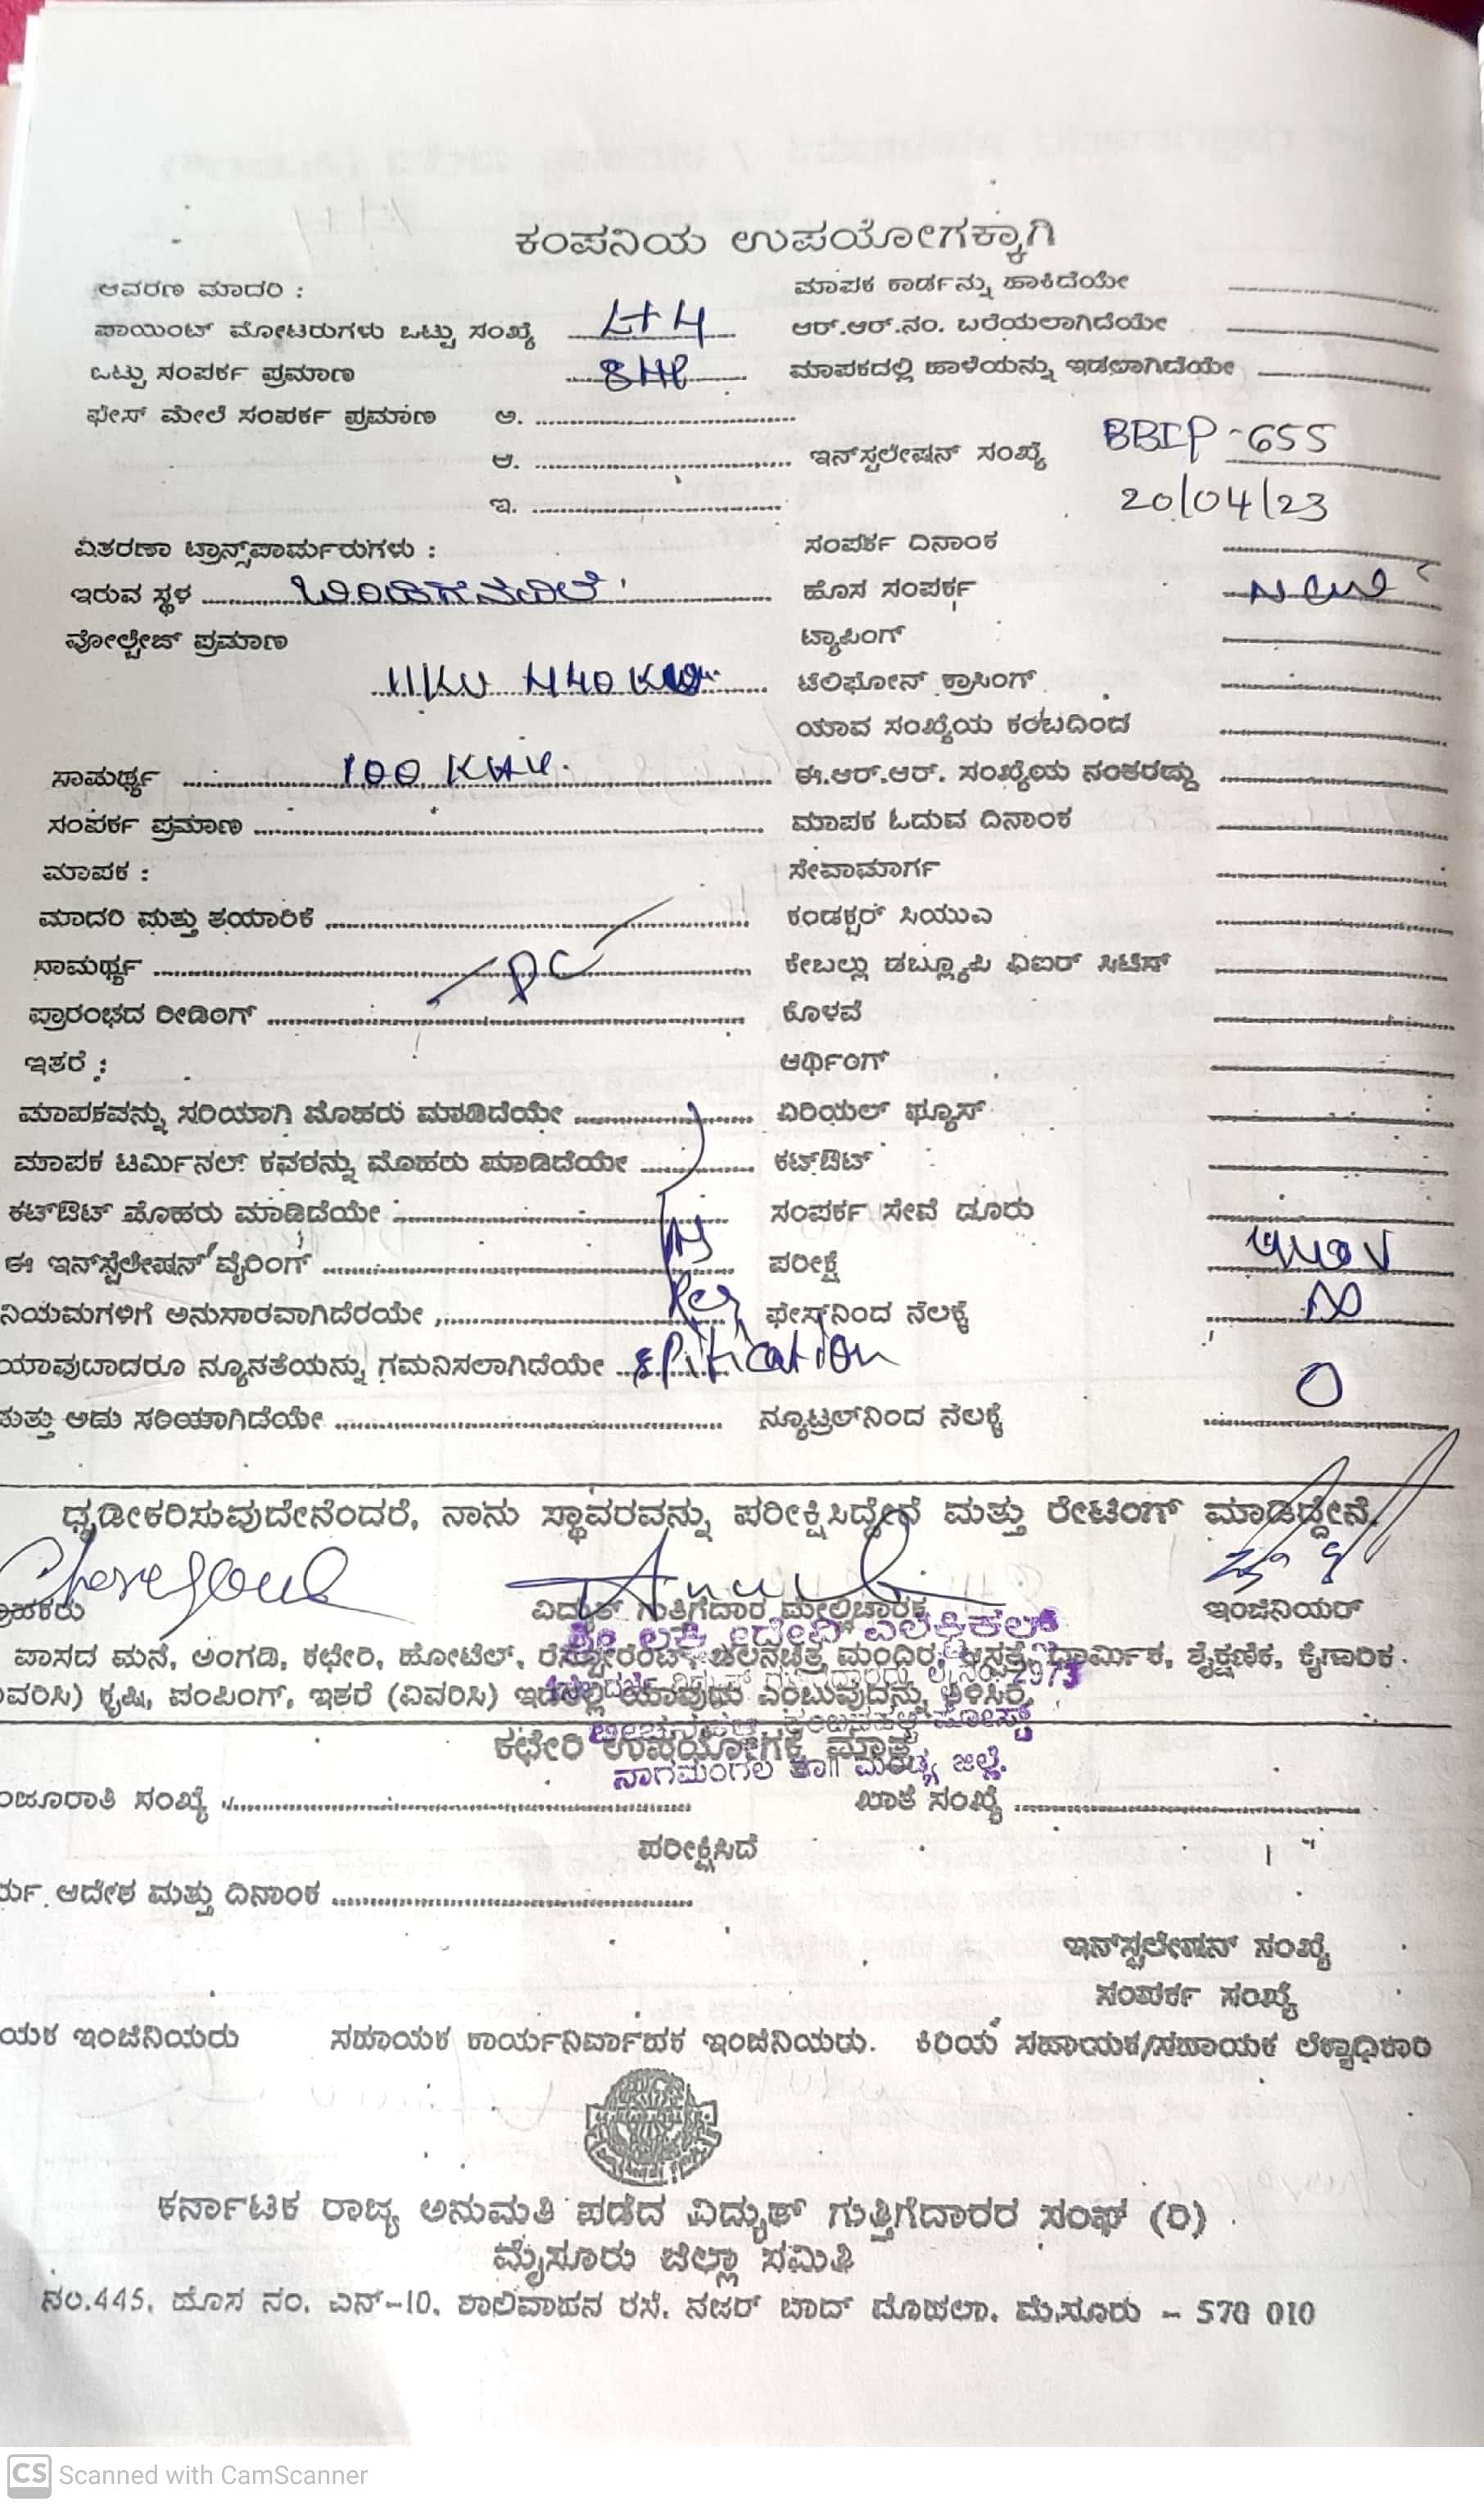 ಕಂಪನಿಯ ಉಪಯೋಗಕ್ಕಾಗಿ
ಆವರಣ ಮಾದರಿ : ಮಾಪಕ ಕಾರ್ಡನ್ನು ಹಾಕಿದೆಯೇ
ಪಾಯಿಂಟ್ ಮೋಟರುಗಳು ಒಟ್ಟು ಸಂಖ್ಯೆ L+4 ಆರ್.ಆರ್.ನಂ. ಬರೆಯಲಾಗಿದೆಯೇ
ಒಟ್ಟು ಸಂಪರ್ಕ ಪ್ರಮಾಣ 8HP ಮಾಪಕದಲ್ಲಿ ಹಾಳೆಯನ್ನು ಇಡಲಾಗಿದೆಯೇ
ಫೇಸ್ ಮೇಲೆ ಸಂಪರ್ಕ ಪ್ರಮಾಣ ಅ.
ಆ. ಇನ್‌ಸ್ಟಲೇಷನ್ ಸಂಖ್ಯೆ BBIP-655
ಇ. 20/04/23
ವಿತರಣಾ ಟ್ರಾನ್ಸ್‌ಪಾರ್ಮರುಗಳು : ಸಂಪರ್ಕ ದಿನಾಂಕ
ಇರುವ ಸ್ಥಳ ಹೊಸ ಸಂಪರ್ಕ New
ವೋಲ್ಟೇಜ್ ಪ್ರಮಾಣ ಟ್ಯಾಪಿಂಗ್
11KV ಟೆಲಿಫೋನ್ ಕ್ರಾಸಿಂಗ್
ಯಾವ ಸಂಖ್ಯೆಯ ಕಂಬದಿಂದ
ಸಾಮರ್ಥ್ಯ 100 ಈ.ಆರ್.ಆರ್. ಸಂಖ್ಯೆಯ ನಂತರದ್ದು
ಸಂಪರ್ಕ ಪ್ರಮಾಣ ಮಾಪಕ ಓದುವ ದಿನಾಂಕ
ಮಾಪಕ : ಸೇವಾಮಾರ್ಗ
ಮಾದರಿ ಮತ್ತು ತಯಾರಿಕೆ ಕಂಡಕ್ಟರ್ ಸಿಯುಎ
ಸಾಮರ್ಥ್ಯ DC ಕೇಬಲ್ಲು ಡಬ್ಲ್ಯೂಪಿ ವಿಐಆರ್ ಸಿಟಿಸ್
ಪ್ರಾರಂಭದ ರೀಡಿಂಗ್ ಕೊಳವೆ
ಇತರೆ : ಆರ್ಥಿಂಗ್
ಮಾಪಕವನ್ನು ಸರಿಯಾಗಿ ಮೊಹರು ಮಾಡಿದೆಯೇ ಏರಿಯಲ್ ಫ್ಯೂಸ್
ಮಾಪಕ ಟರ್ಮಿನಲ್ ಕವರನ್ನು ಮೊಹರು ಮಾಡಿದೆಯೇ ಕಟ್‌ಔಟ್
ಕಟ್‌ಔಟ್ ಮೊಹರು ಮಾಡಿದೆಯೇ ಸಂಪರ್ಕ ಸೇವೆ ದೂರು
ಈ ಇನ್‌ಸ್ಟೆಲೇಷನ್ ವೈರಿಂಗ್ As ಪರೀಕ್ಷೆ 440V
ನಿಯಮಗಳಿಗೆ ಅನುಸಾರವಾಗಿದೆರಯೇ Per ಫೇಸ್‌ನಿಂದ ನೆಲಕ್ಕೆ ∞
ಯಾವುದಾದರೂ ನ್ಯೂನತೆಯನ್ನು ಗಮನಿಸಲಾಗಿದೆಯೇ
ಮತ್ತು ಅದು ಸರಿಯಾಗಿದೆಯೇ ನ್ಯೂಟ್ರಲ್‌ನಿಂದ ನೆಲಕ್ಕೆ 0
ಧೃಡೀಕರಿಸುವುದೇನೆಂದರೆ, ನಾನು ಸ್ಥಾವರವನ್ನು ಪರೀಕ್ಷಿಸಿದ್ದೇನೆ ಮತ್ತು ರೇಟಿಂಗ್ ಮಾಡಿದ್ದೇನೆ.
ವಿದ್ಯುತ್ ಗುತ್ತಿಗೆದಾರ ಮೇಲ್ವಿಚಾರಕ ಇಂಜಿನಿಯರ್
ಶ್ರೀ ಲಕ್ಷ್ಮೀದೇವಿ ಎಲೆಕ್ಟ್ರಿಕಲ್ಸ್
ವಾಸದ ಮನೆ, ಅಂಗಡಿ, ಕಛೇರಿ, ಹೋಟೆಲ್, ರೆಸ್ಟೋರೆಂಟ್, ಚಲನಚಿತ್ರ ಮಂದಿರ, ಆಸ್ಪತ್ರೆ, ಧಾರ್ಮಿಕ, ಶೈಕ್ಷಣಿಕ, ಕೈಗಾರಿಕ.
ವಿವರಿಸಿ) ಕೃಷಿ, ಪಂಪಿಂಗ್, ಇತರೆ (ವಿವರಿಸಿ) ಇದರಲ್ಲಿ ಯಾವುದು ಎಂಬುವುದನ್ನು ತಿಳಿಸಿರಿ.
ಕಛೇರಿ ಉಪಯೋಗಕ್ಕೆ ಮಾತ್ರ
ನಾಗಮಂಗಲ ತಾ|| ಮಂಡ್ಯ ಜಿಲ್ಲೆ.
ಮಂಜೂರಾತಿ ಸಂಖ್ಯೆ ಖಾತೆ ಸಂಖ್ಯೆ
ಪರೀಕ್ಷಿಸಿದೆ
ಆದೇಶ ಮತ್ತು ದಿನಾಂಕ
ಇನ್‌ಸ್ಟಲೇಷನ್ ಸಂಖ್ಯೆ
ಸಂಪರ್ಕ ಸಂಖ್ಯೆ
ಯಕ ಇಂಜಿನಿಯರು ಸಹಾಯಕ ಕಾರ್ಯನಿರ್ವಾಹಕ ಇಂಜಿನಿಯರು. ಕಿರಿಯ ಸಹಾಯಕ/ಸಹಾಯಕ ಲೆಕ್ಕಾಧಿಕಾರಿ
ಕರ್ನಾಟಕ ರಾಜ್ಯ ಅನುಮತಿ ಪಡೆದ ವಿದ್ಯುತ್ ಗುತ್ತಿಗೆದಾರರ ಸಂಘ (ರಿ)
ಮೈಸೂರು ಜಿಲ್ಲಾ ಸಮಿತಿ
ನಂ.445, ಹೊಸ ನಂ. ಎನ್-10, ಶಾಲಿವಾಹನ ರಸ್ತೆ, ನಜರ್ ಬಾದ್ ಮೊಹಲಾ, ಮೈಸೂರು - 570 010
CS Scanned with CamScanner